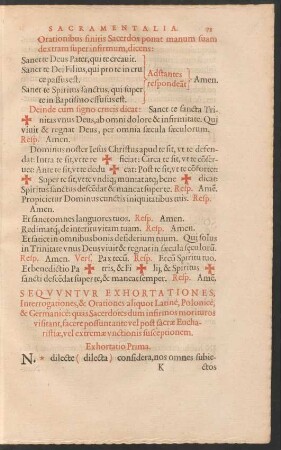 SACRAMENTALIA. 93
Orationibus finitis Sacerdos ponat manum suam
dextram super infirmum, dicens:
Sanet te Deus Pater, qui te creauit.
Sanet te Dei Filius, qui pro te in cru
ce passus est.
Sanet te Spiritus sanctus, qui super
te in Baptismo effusus est.
Adstantes respondeāt
Amen.
Deinde cum signo crucis dicat: Sanet te sancta Tri-
nitas vnus Deus, ab omni dolore & infirmitate. Qui
viuit & regnat Deus, per omnia sæcula sæculorum.
Resp. Amen.
Dominus noster Iesus Christus apud te sit, vt te defen-
dat: Intra te sit, vt te re ficiat: Circa te sit, vt te cōser-
uet: Ante te sit, vt te dedu cat: Post te sit, vt te cō-
fortet: Super te sit, vt te vndiq; muniat at℞, bene dicat:
Spiritus sanctus descēdat & maneat super te. Resp. Amē.
Propicietur Dominus cunctis iniquitatibus tuis. Resp.
Amen.
Et sanet omnes languores tuos. Resp. Amen.
Redimatq; de interitu vitam tuam. Resp. Amen.
Et saciet in omnibus bonis desiderium tuum. Qui solus
in Trinitate vnus Deus viuit & regnat in sæcula sæculorū.
Resp. Amen. Vers. Pax tecū. Resp. Et cū Spiritu tuo.
Et benedictio Pa tris, & Fi lij, & Spiritus
sancti descēdat super te, & maneat semper. Resp. Amē.
SEQVVNTVR EXHORTATIONES,
Interrogationes, & Orationes aliquot Latinè, Polonicè,
& Germanicè: quas Sacerdotes dum infirmos morituros
visitant, facere possunt ante vel post sacræ Eucha-
ristiæ, vel extremæ vnctionis susceptionem.
Exhortatio Prima.
N. dilecte (dilecta) considera, nos omnes subie-
K ctos